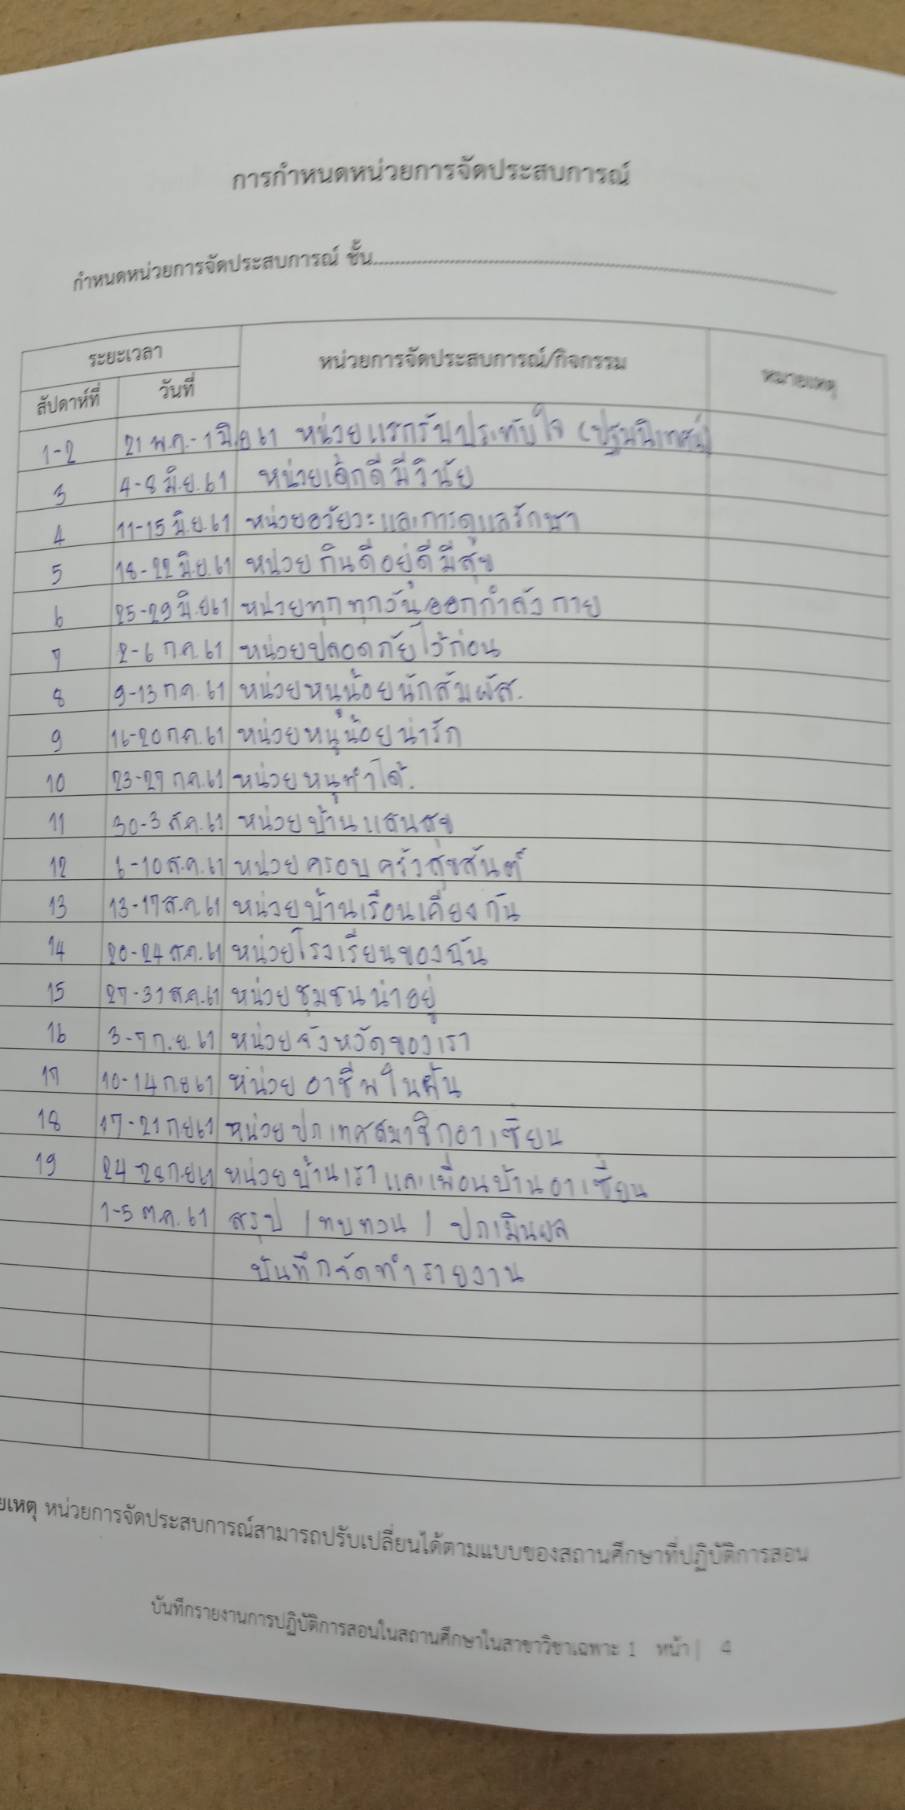 การกำหนดหน่วยการจัดประสบการณ์
กำหนดหน่วยการจัดประสบการณ์ ชั้น
ระยะเวลา หน่วยการจัดประสบการณ์/กิจกรรม หมายเหตุ
สัปดาห์ที่ วันที่
1-2 21 พ.ค.-1 มิ.ย 61 หน่วยแรกรับประทับใจ (ปฐมนิเทศน์)
3 4-8 มิ.ย. 61 หน่วยเด็กดีมีวินัย
4 11-15 มิ.ย. 61 หน่วยอวัยวะและการดูแลรักษา
5 18-22 มิ.ย. 61 หน่วยกินดีอยู่ดีมีสุข
6 25-29 มิ.ย61 หน่วยทุกทุกวันออกกำลังกาย
7 2-6 ก.ค. 61 หน่วยปลอดภัยไว้ก่อน
8 9-13 ก.ค. 61 หน่วยหนูน้อยนักสัมผัส.
9 16-20 ก.ค. 61 หน่วยหนูน้อยน่ารัก
10 23-27 ก.ค. 61 หน่วยหนูทำได้.
11 30-3 ส.ค. 61 หน่วยบ้านแสนสุข
12 6-10 ส.ค. 61 หน่วยครอบครัวสุขสันต์
13 13-17 ส.ค. 61 หน่วยบ้านเรือนเคียงกัน
14 20-24 ส.ค. 61 หน่วยโรงเรียนของฉัน
15 27-31 ส.ค. 61 หน่วยชุมชนน่าอยู่
16 3-7 ก.ย. 61 หน่วยจังหวัดของเรา
17 10-14 กย 61 หน่วยอาชีพในฝัน
18 17-21 กย 61 หน่วยปภเทศสมาชิกอาเซียน
19 24-28 ก.ย 61 หน่วยบ้านเราและเพื่อนบ้านอาเซียน
1-5 ต.ค. 61 สรุป / ทบทวน / ปภเมินผล
บันทึกจัดทำรายงาน
ยเหตุ หน่วยการจัดประสบการณ์สามารถปรับเปลี่ยนได้ตามแบบของสถานศึกษาที่ปฏิบัติการสอน
บันทึกรายงานการปฏิบัติการสอนในสถานศึกษาในสาขาวิชาเฉพาะ 1 หน้า | 4